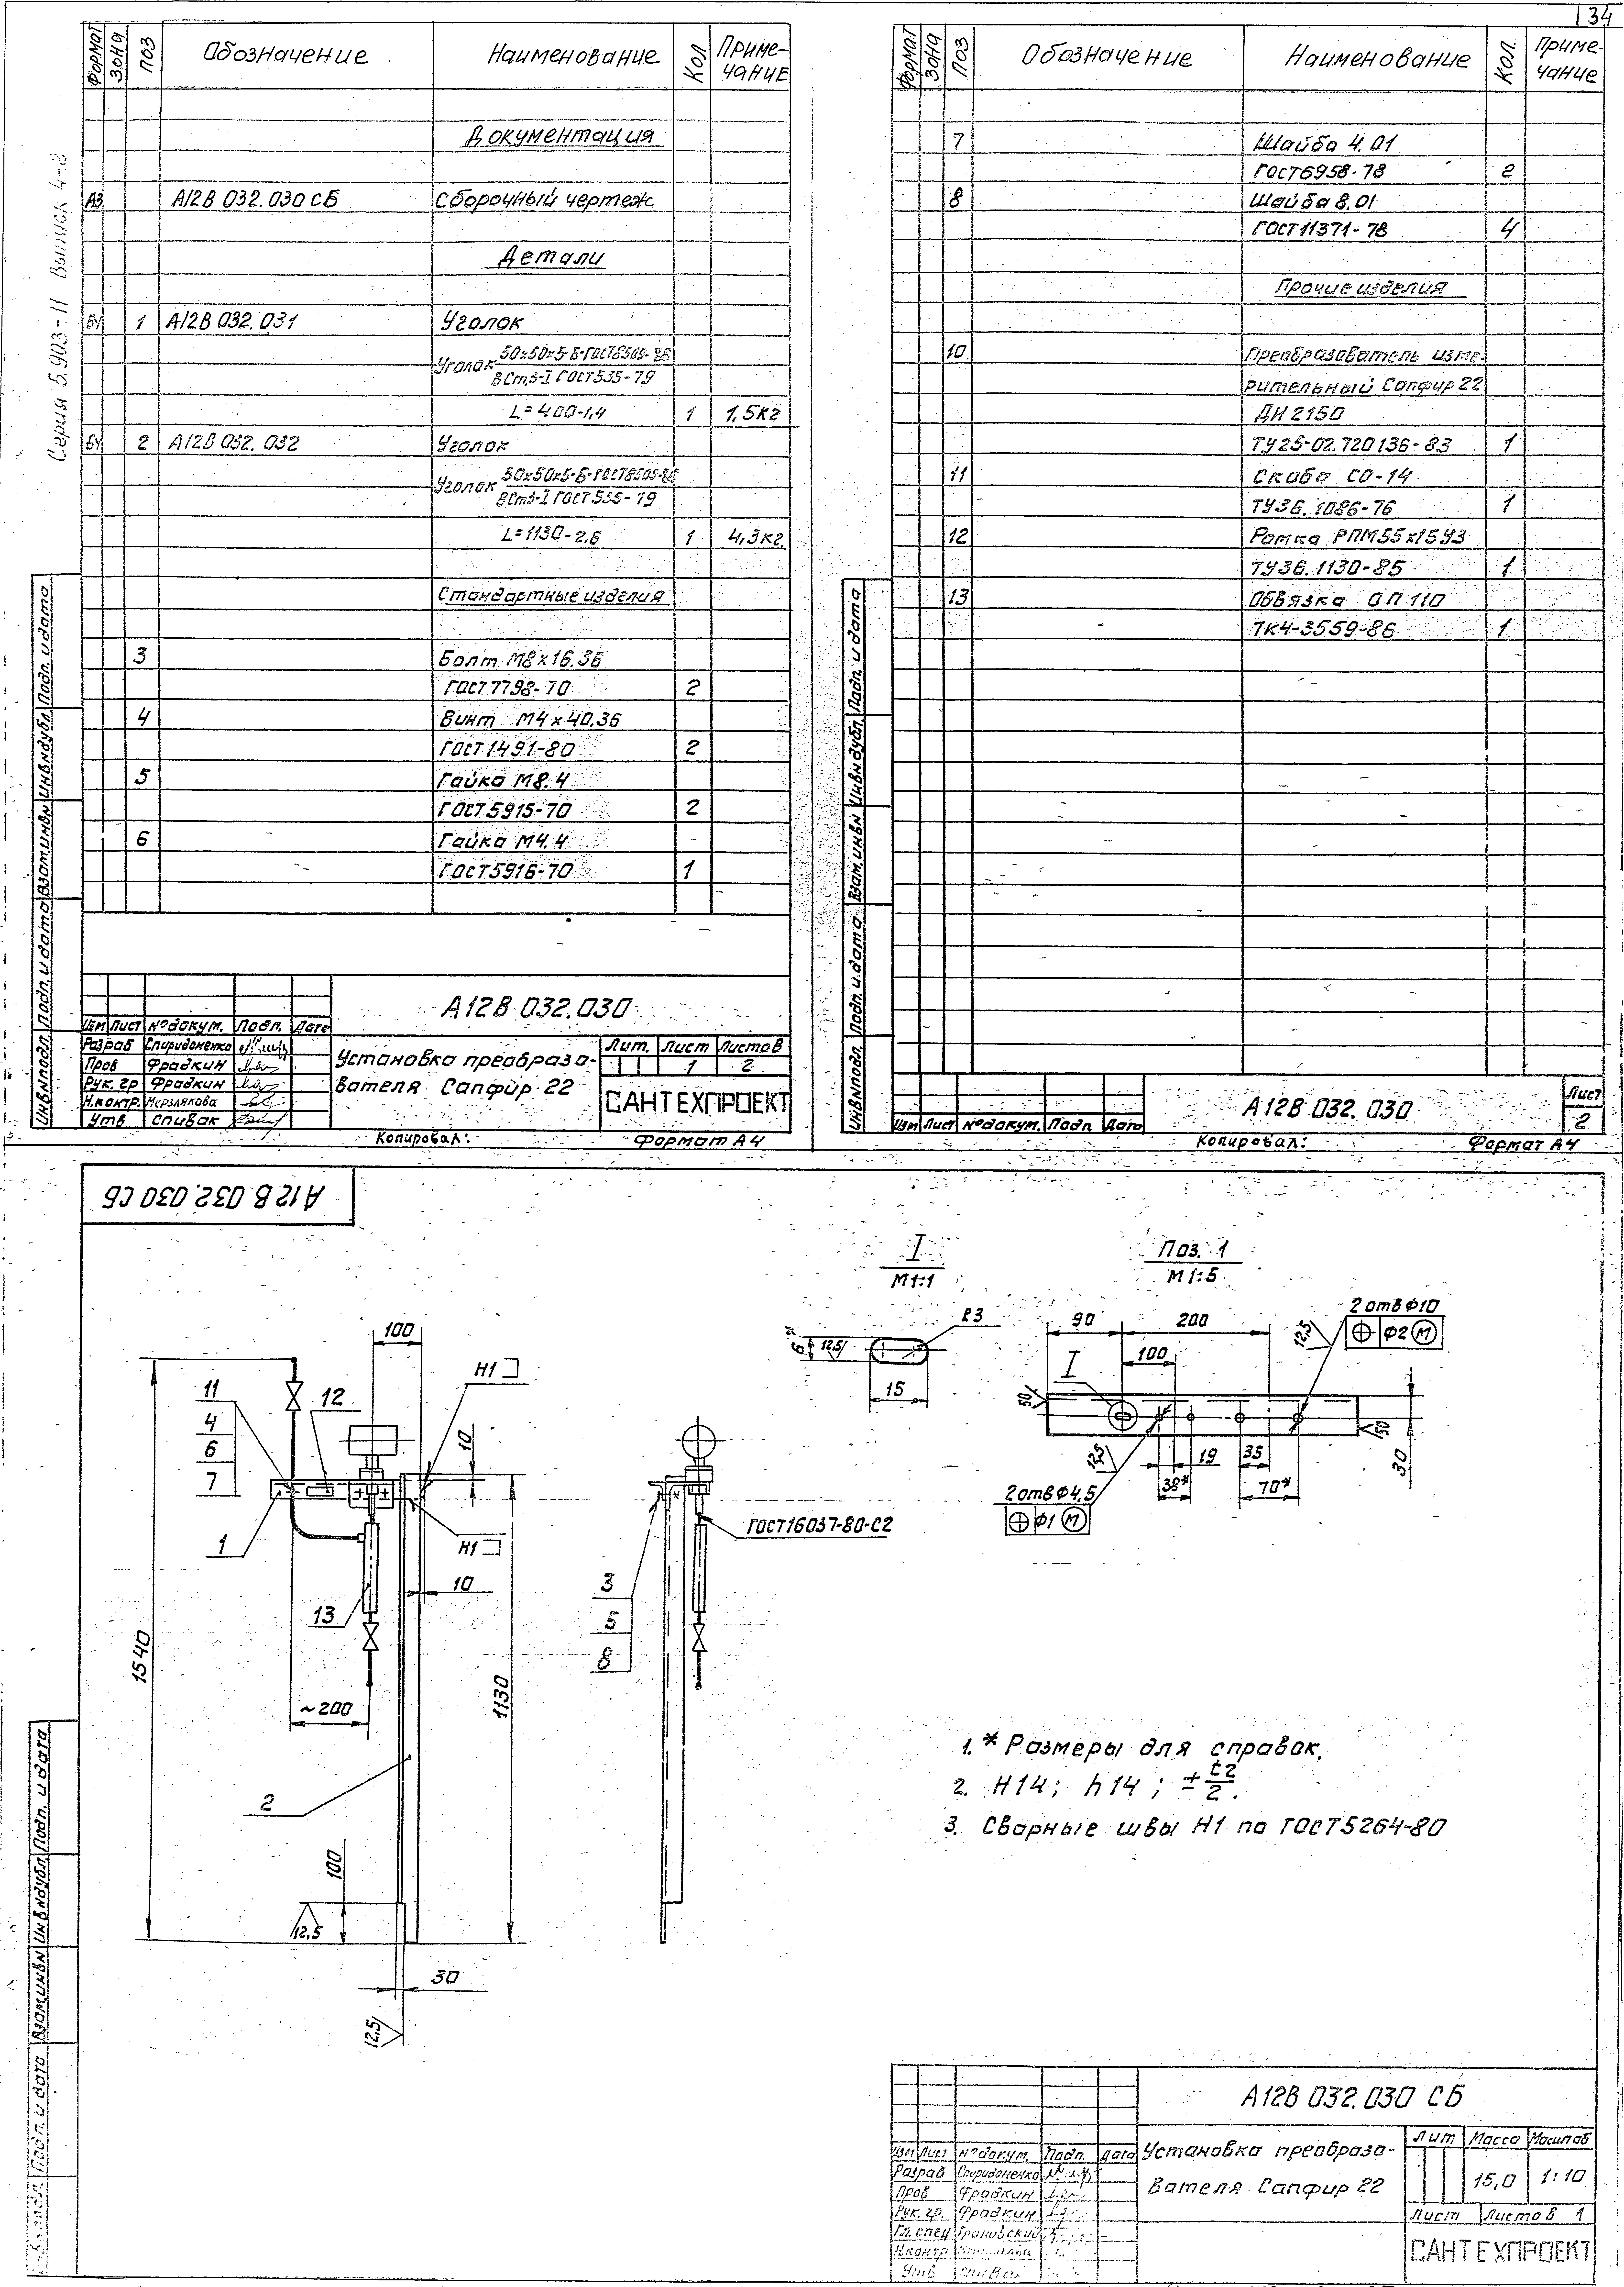 34
Серия 5.903-11 Выпуск 4-3
Формат Зона Поз Обозначение Наименование Кол Приме-чание
Документация
А3 А12В 032.030 СБ Сборочный чертеж
Детали
БЧ 1 А12В 032.031 Уголок
Уголок 50х50х5-Б-ГОСТ8509-86
ВСт3-I ГОСТ535-79
L=400-1,4 1 1,5кг
БЧ 2 А12В 032.032 Уголок
Уголок 50х50х5-Б-ГОСТ8509-86
ВСт3-I ГОСТ535-79
L=1130-2,6 1 4,3кг.
Стандартные изделия
3 Болт М8х16.36
ГОСТ7798-70 2
4 Винт М4х40.36
ГОСТ1491-80 2
5 Гайка М8.4
ГОСТ5915-70 2
6 Гайка М4.4
ГОСТ5916-70 1
Инв№подл. Подп. и дата Взам.инв№ Инв№дубл. Подп. и дата
А12В 032.030
Изм Лист №докум. Подп. Дата
Разраб Спиридоненко
Пров Фрадкин
Рук. гр Фрадкин
Н.контр. Мерзлякова
Утв Спивак
Установка преобразо-
вателя Сапфир 22
Лит. Лист Листов
1 2
САНТЕХПРОЕКТ
Копировал: Формат А4
Формат Зона Поз Обозначение Наименование Кол. Приме-чание
7 Шайба 4.01
ГОСТ6958-78 2
8 Шайба 8.01
ГОСТ11371-78 4
Прочие изделия
10 Преобразователь изме-
рительный Сапфир 22
ДИ 2150
ТУ25-02.720136-83 1
11 Скоба СО-14
ТУ36.1086-76 1
12 Рамка РПМ55х15У3
ТУ36.1130-85 1
13 Обвязка ОП 110
ТК4-3559-86 1
Инв№подл. Подп. и дата Взам.инв№ Инв№дубл. Подп. и дата
Изм Лист №докум. Подп Дата
А12В 032.030
Лист
2
Копировал: Формат А4
А12В 032.030 СБ
I
М1:1
R3
12,5
15
Поз. 1
М1:5
90
200
100
I
2 отв Ф10
Ф2 М
12,5
50
50
12,5
19
35
38*
70*
30
2отвФ4,5
Ф1 М
100
Н1
11
4
6
7
12
10
1
Н1
10
13
1540
~200
1130
2
100
12,5
30
12,5
ГОСТ16037-80-С2
3
5
8
1. * Размеры для справок.
2. Н14; h14; ± t2/2.
3. Сварные швы Н1 по ГОСТ5264-80
Инв№дубл. Подп. и дата
Подп. и дата Взам.инв№
А12В 032.030 СБ
Изм Лист №докум. Подп. Дата
Разраб Спиридоненко
Пров Фрадкин
Рук. гр. Фрадкин
Гл. спец Грановский
Н.контр
Утв Спивак
Установка преобразо-
вателя Сапфир 22
Лит Масса Масштаб
15,0 1:10
Лист Листов 1
САНТЕХПРОЕКТ